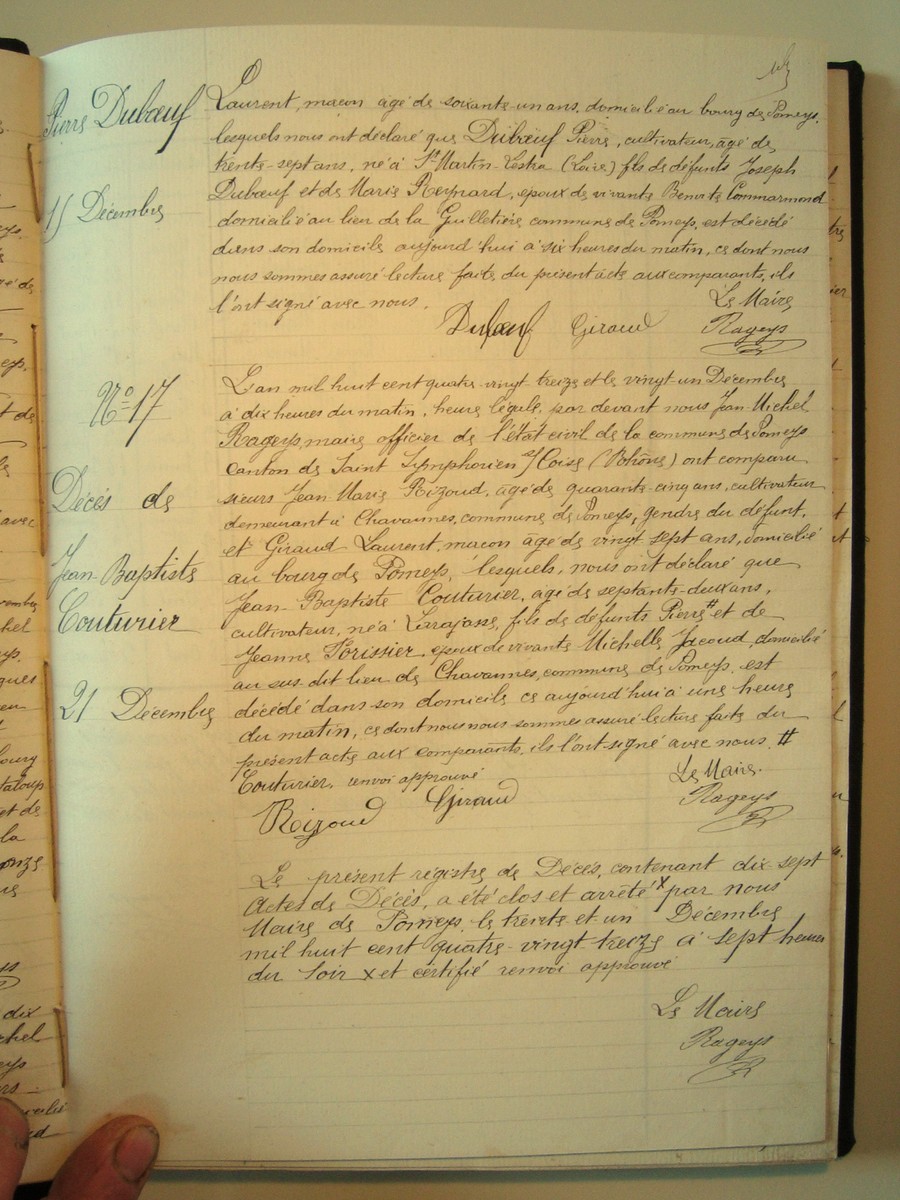 Pierre Dubœuf
15 Décembre
Laurent, maçon âgé de soixante-un ans, domicilié au bourg de Pomeys.
lesquels nous ont déclaré que Dubœuf Pierre, cultivateur, âgé de
trente-sept ans, né à St Martin-Lestra (Loire) fils de défunts Joseph
Dubœuf et de Marie Reynard, époux de vivante Benoite Commarmond
domicilié au lieu de la Guilletière commune de Pomeys, est décédé
dans son domicile aujourd'hui à six heures du matin, ce dont nous
nous sommes assuré lecture faite du présent acte aux comparants, ils
l'ont signé avec nous.
Le Maire
Dubœuf Giraud Rageys
No 17
Décés de
Jean-Baptiste
Couturier
21 Décembre
L'an mil huit cent quatre-vingt treize et le vingt-un Décembre
à dix heures du matin, heure légale, par devant nous Jean Michel
Rageys, maire officier de l'état civil de la commune de Pomeys
canton de Saint Symphorien s/ Coise (Rhône) ont comparu
sieurs Jean-Marie Rizoud, âgé de quarante-cinq ans, cultivateur
demeurant à Chavannes, commune de Pomeys, gendre du défunt,
et Giraud Laurent, maçon âgé de vingt sept ans, domicilié
au bourg de Pomeys, lesquels, nous ont déclaré que
Jean-Baptiste Couturier, âgé de septante-deux ans,
cultivateur, né à Larajasse, fils de défunts Pierre # et de
Jeanne Thorissier, époux de vivante Michelle Jacoud, domicilié
au sus dit lieu de Chavannes, commune de Pomeys, est
décédé dans son domicile ce aujourd'hui à une heure
du matin, ce dont nous nous sommes assuré lecture faite du
présent acte aux comparants, ils l'ont signé avec nous. #
Couturier, renvoi approuvé
Le Maire.
Rizoud Giraud Rageys
Le présent registre de Décés, contenant dix sept
Actes de Décés, a été clos et arrêté x par nous
Maire de Pomeys, le trente-et-un Décembre
mil huit cent quatre-vingt treize à sept heures
du soir x et certifié renvoi approuvé
Le Maire
Rageys